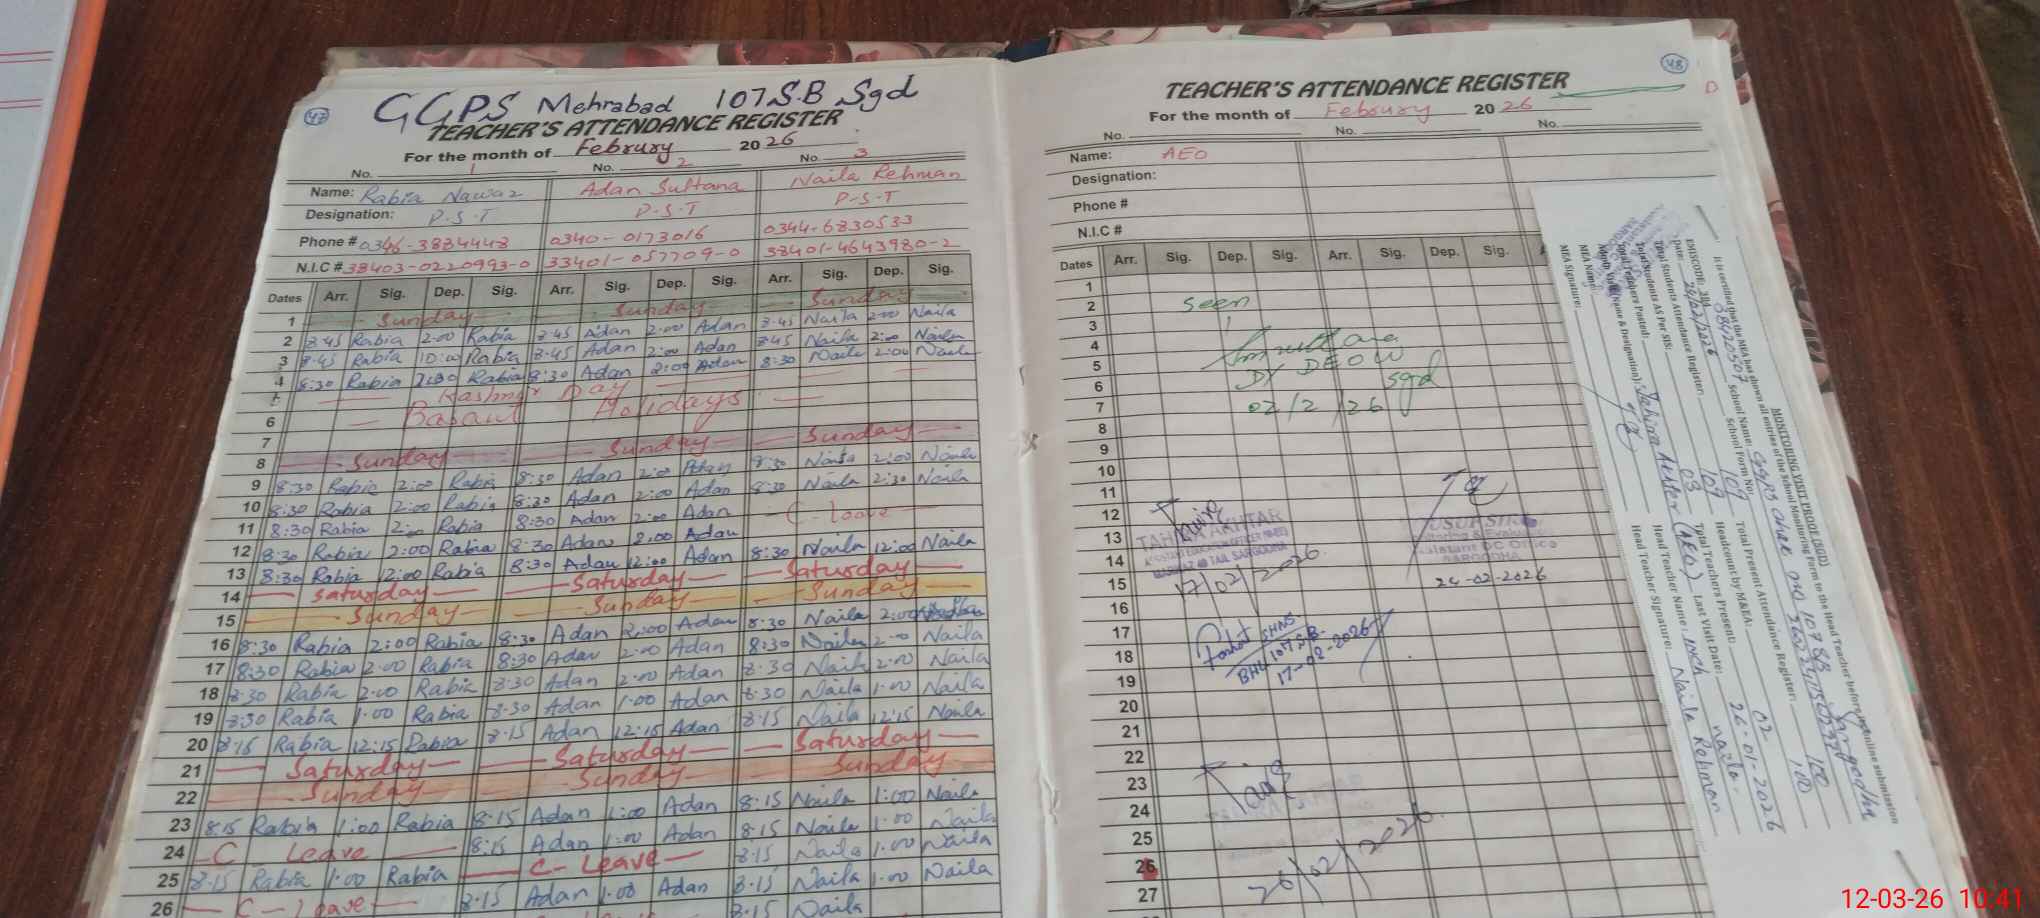 47
GGPS Mehrabad 107 S.B Sgd
TEACHER'S ATTENDANCE REGISTER
For the month of Februry 20 26
No. 1 No. 2 No. 3
Name: Rabia Nawaz Adan Sultana Naila Rehman
Designation: P.S.T P.S.T P-S-T
Phone # 0346-3884448 0340-0173016 0344-6830533
N.I.C # 38403-0220993-0 33401-057709-0 38401-4643980-2
Dates Arr. Sig. Dep. Sig. Arr. Sig. Dep. Sig. Arr. Sig. Dep. Sig.
1 Sunday Sunday Sunday
2 8:45 Rabia 2:00 Rabia 8:45 Adan 2:00 Adan 8:45 Naila 2:00 Naila
3 8:45 Rabia 10:00 Rabia 8:45 Adan 2:00 Adan 8:45 Naila 2:00 Naila
4 8:30 Rabia 2:30 Rabia 8:30 Adan 2:00 Adan 8:30 Naila 2:00 Naila
5 Kashmir Day
6 Basant Holidays
7
8 Sunday Sunday Sunday
9 8:30 Rabia 2:00 Rabia 8:30 Adan 2:00 Adan 8:30 Naila 2:00 Naila
10 8:30 Rabia 2:00 Rabia 8:30 Adan 2:00 Adan 8:30 Naila 2:30 Naila
11 8:30 Rabia 2:00 Rabia 8:30 Adan 2:00 Adan C-leave
12 8:30 Rabia 2:00 Rabia 8:30 Adan 2:00 Adan 8:30 Naila 12:00 Naila
13 8:30 Rabia 12:00 Rabia 8:30 Adan 12:00 Adan
14 Saturday Saturday Saturday
15 Sunday Sunday Sunday
16 8:30 Rabia 2:00 Rabia 8:30 Adan 2:00 Adan 8:30 Naila 2:00
17 8:30 Rabia 2:00 Rabia 8:30 Adan 2:00 Adan 8:30 Naila 2:00 Naila
18 8:30 Rabia 2:00 Rabia 8:30 Adan 2:00 Adan 8:30 Naila 2:00 Naila
19 8:30 Rabia 1:00 Rabia 8:30 Adan 1:00 Adan 8:30 Naila 1:00 Naila
20 8:15 Rabia 12:15 Rabia 8:15 Adan 12:15 Adan 8:15 Naila 12:15 Naila
21 Saturday Saturday Saturday
22 Sunday Sunday Sunday
23 8:15 Rabia 1:00 Rabia 8:15 Adan 1:00 Adan 8:15 Naila 1:00 Naila
24 C Leave 8:15 Adan 1:00 Adan 8:15 Naila 1:00 Naila
25 8:15 Rabia 1:00 Rabia C-Leave 8:15 Naila 1:00 Naila
26 C-Leave 8:15 Adan 1:00 Adan 8:15 Naila 1:00 Naila
8:15 Naila
48
TEACHER'S ATTENDANCE REGISTER
For the month of Februry 20 26
No. No. No.
Name: AEO
Designation:
Phone #
N.I.C #
Dates Arr. Sig. Dep. Sig. Arr. Sig. Dep. Sig.
1
2 seen
3
4
5 DY DEOW
6 sgd
7 02/2/26
8
9
10
11
12
13 TAHIRA AKHTAR
14
15 17/02/2026 24-02-2026
16
17 SHNS
18 BHU 107 S.B.
19 17-02-2026
20
21
22
23
24
25
26 26/02/2026
27
MONITORING VISIT PROOF (SGD)
It is certified that the MEA has shown all entries of the School Monitoring Form to the Head Teacher before online submission
EMISCODE: 38420507 School Name: GGPS Chak no 107 SB Sargodha
Date: 26/02/2026 School Form No:
Total Students As Per SIS: 109 Total Present Attendance Register: 100
Total Students Attendance Register: 109 Headcount by M&EA: 100
Total Teachers Posted: 03 Total Teachers Present: 02
Last Visit Date: 26-01-2026
MEA Name: Head Teacher Name: Naila Rehman
MEA Signature: Head Teacher Signature: Naila
12-03-26 10:41